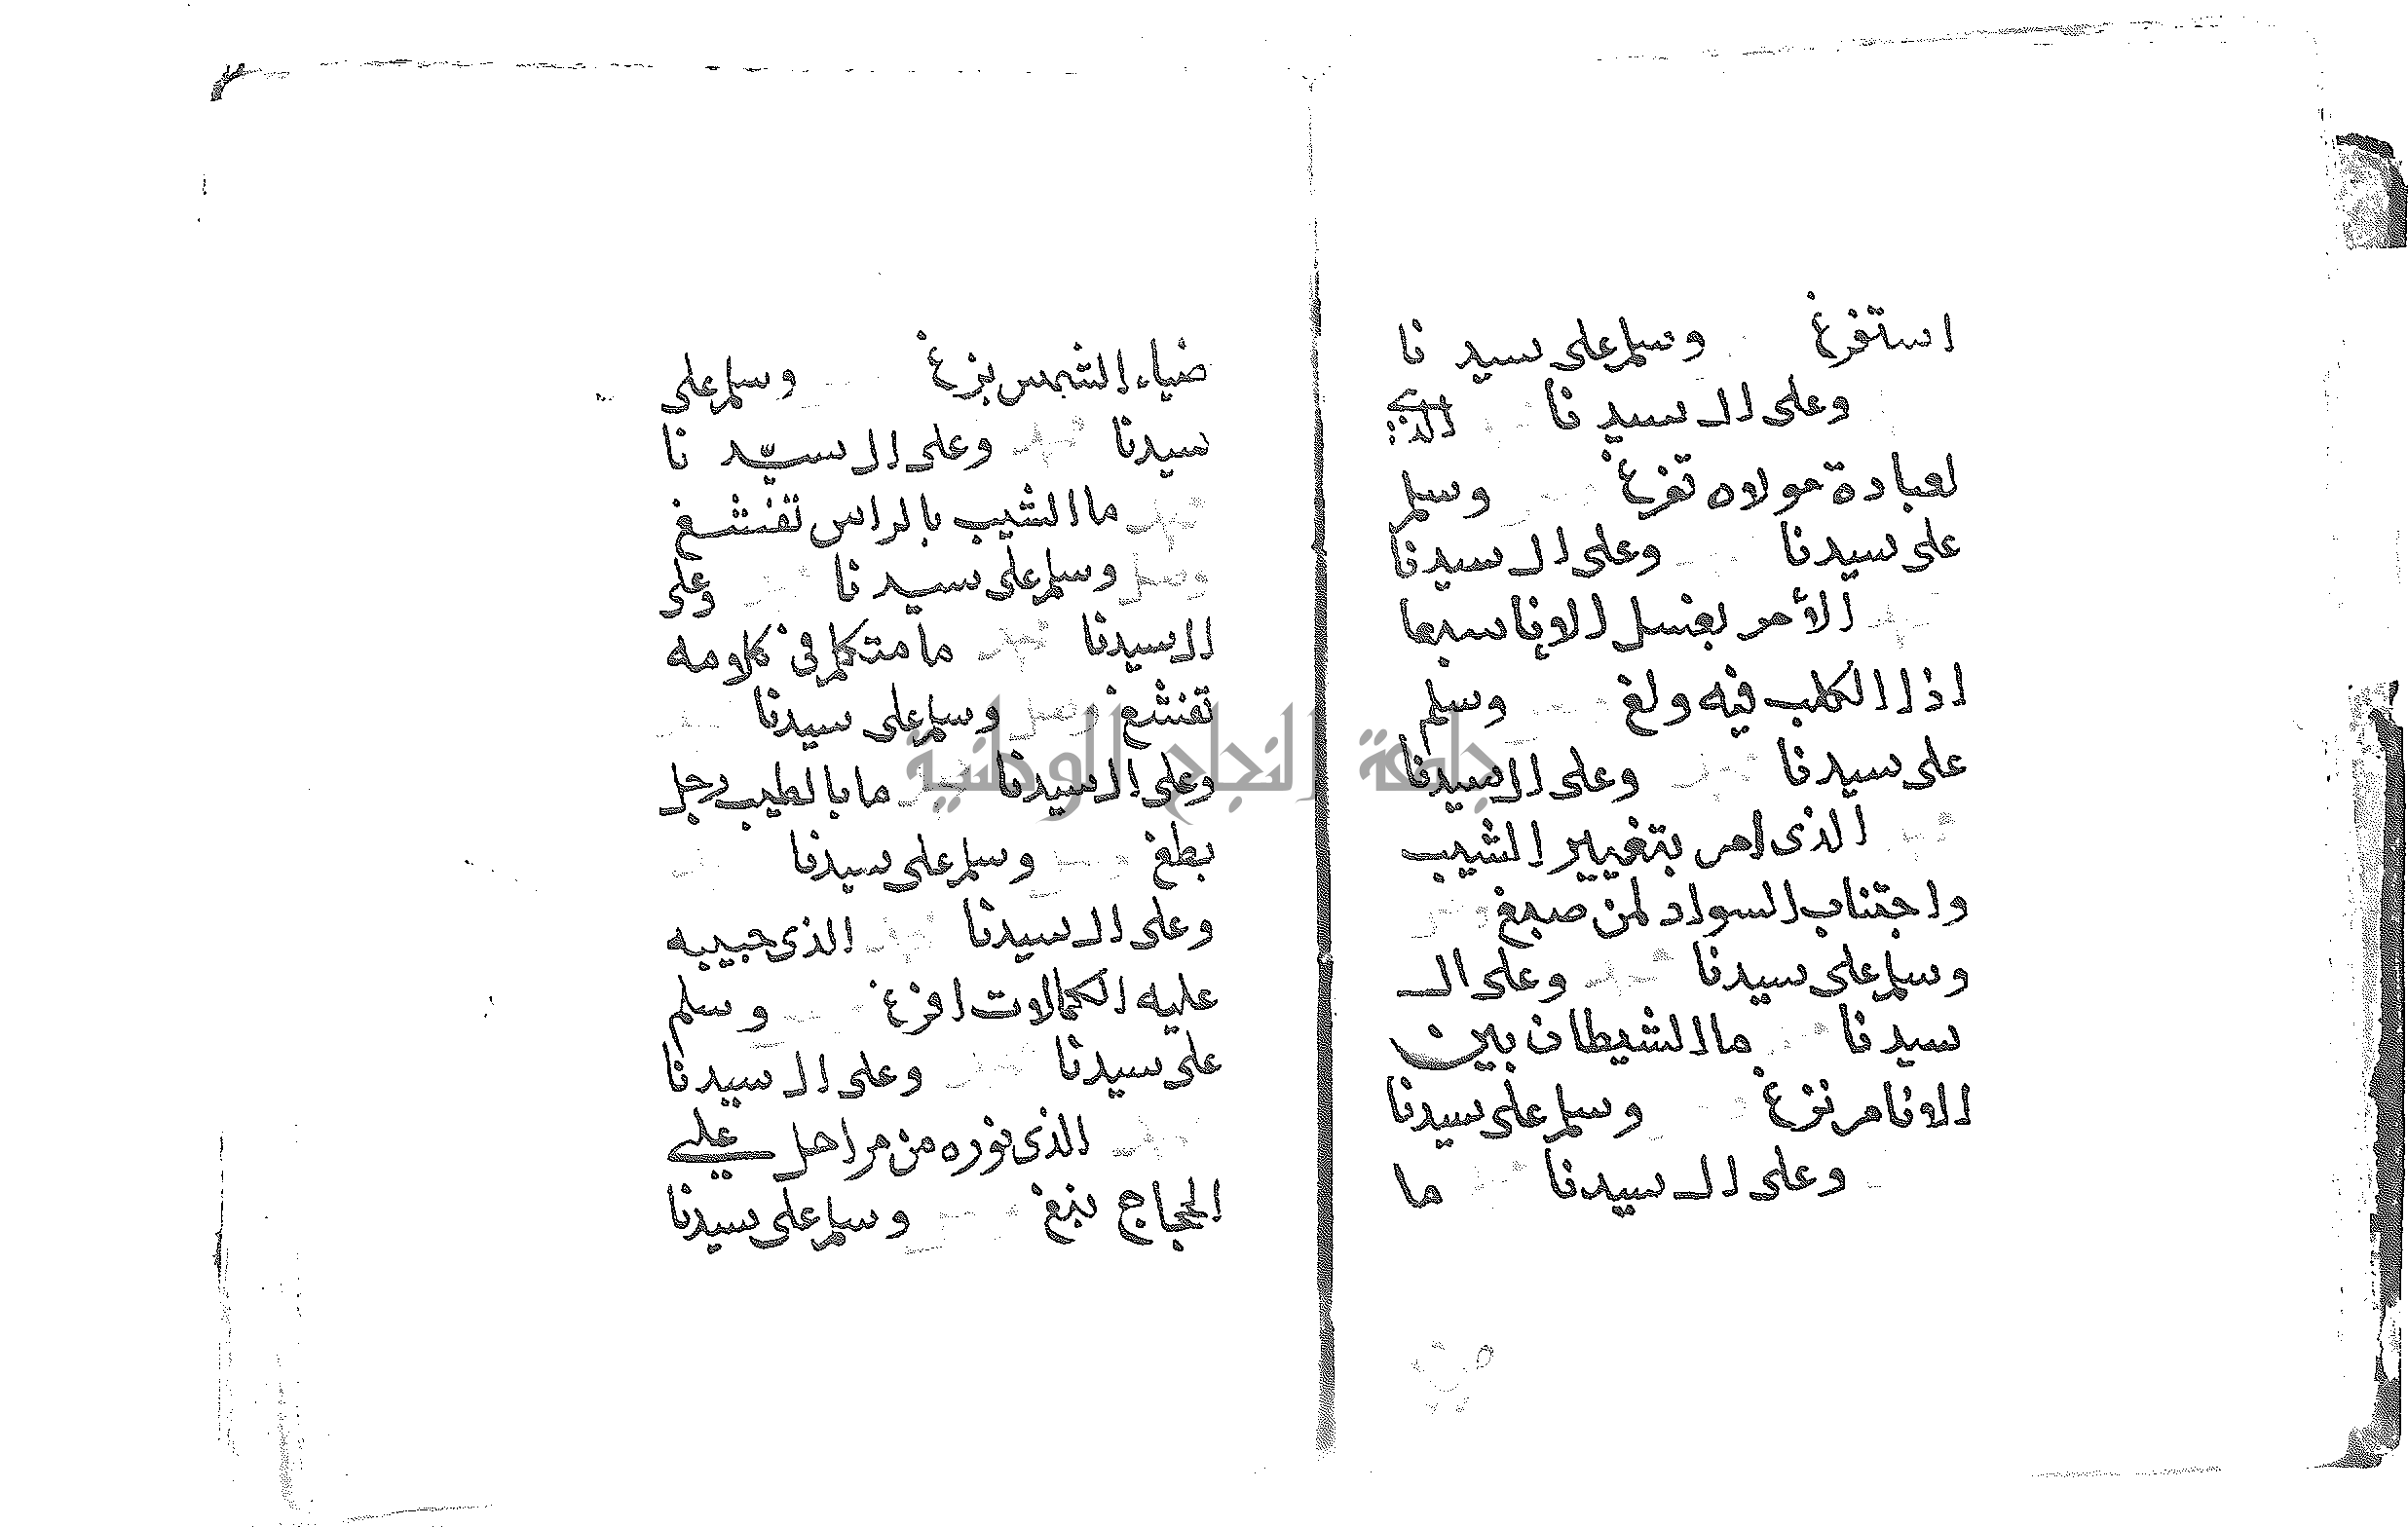 استفرغ وسلم على سيدنا
وعلى ال سيدنا الذي
لعبادة مولاه تفرغ وسلم
على سيدنا وعلى ال سيدنا
الأمر بغسل الإناسبعا
اذا الكلب فيه ولغ وسلم
على سيدنا وعلى ال سيدنا
الذى امر بتغيير الشيب
واجتناب السواد لمن صبغ
وسلم على سيدنا وعلى ال
سيدنا ما الشيطان بين
الانام نزغ وسلم على سيدنا
وعلى ال سيدنا ما
ضياء الشمس بزغ وسلم على
سيدنا وعلى ال سيّدنا
ما الشيب بالراس تفشغ
وسلم على سيدنا وعلى
ال سيدنا ما متكلم فى كلامه
تفشغ وسلم على سيدنا
وعلى ال سيدنا ما بالطيب رجل
وسلم على سيدنا
وعلى ال سيدنا الذى حبيبه
عليه الكمالات افرغ وسلم
على سيدنا وعلى ال سيدنا
الذى نوره من مراحل على
الحجاج نبغ وسلم على سيدنا
جامعة النجاح الوطنية